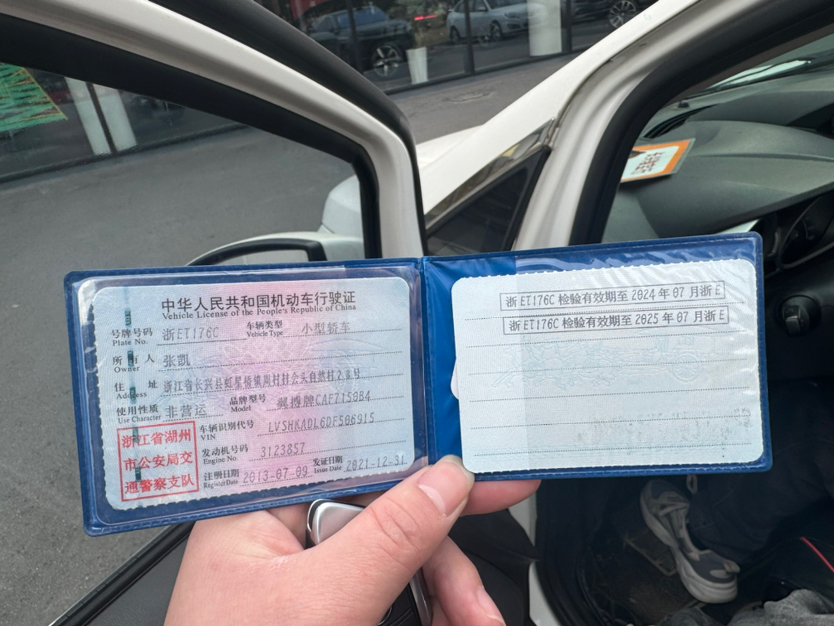 中华人民共和国机动车行驶证
Vehicle License of the People's Republic of China
号牌号码 浙ET176C 车辆类型 小型轿车
Plate No. Vehicle Type
所有人 张凯
Owner
住址 浙江省长兴县虹星桥镇周村村会头自然村28号
Address
使用性质 非营运 品牌型号 翼搏牌CAF7159B4
Use Character Model
浙江省湖州
市公安局交
通警察支队
车辆识别代号 LVSHKADL6DF506915
VIN
发动机号码 3123857
Engine No.
注册日期 2013-07-09 发证日期 2021-12-31
Register Date Issue Date
浙ET176C 检验有效期至 2024 年 07 月浙E
浙ET176C 检验有效期至 2025 年 07 月浙E